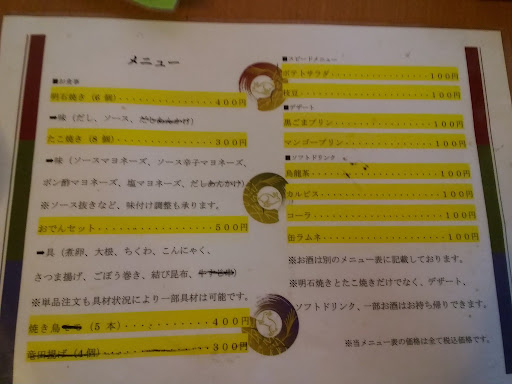 メニュー
■お食事
明石焼き（6個）・・・・・・・・・・・・・・・400円
➡味（だし、ソース、
たこ焼き（8個）・・・・・・・・・・・・・・・300円
➡味（ソースマヨネーズ、ソース辛子マヨネーズ、
ポン酢マヨネーズ、塩マヨネーズ、だし
※ソース抜きなど、味付け調整も承ります。
おでんセット・・・・・・・・・・・・・・・500円
➡具（煮卵、大根、ちくわ、こんにゃく、
さつま揚げ、ごぼう巻き、結び昆布、
※単品注文も具材状況により一部具材は可能です。
焼き鳥（5本）・・・・・・・・・・・・・400円
竜田揚げ（4個）・・・・・・・・・・・・300円
■スピードメニュー
ポテトサラダ・・・・・・・・・・・・・100円
枝豆・・・・・・・・・・・・・・・・・100円
■デザート
黒ごまプリン・・・・・・・・・・・・・100円
マンゴープリン・・・・・・・・・・・・100円
■ソフトドリンク
烏龍茶・・・・・・・・・・・・・・・・100円
カルピス・・・・・・・・・・・・・・・100円
コーラ・・・・・・・・・・・・・・・・100円
缶ラムネ・・・・・・・・・・・・・・・100円
※お酒は別のメニュー表に記載しております。
※明石焼きとたこ焼きだけでなく、デザート、
ソフトドリンク、一部お酒はお持ち帰りできます。
※当メニュー表の価格は全て税込価格です。